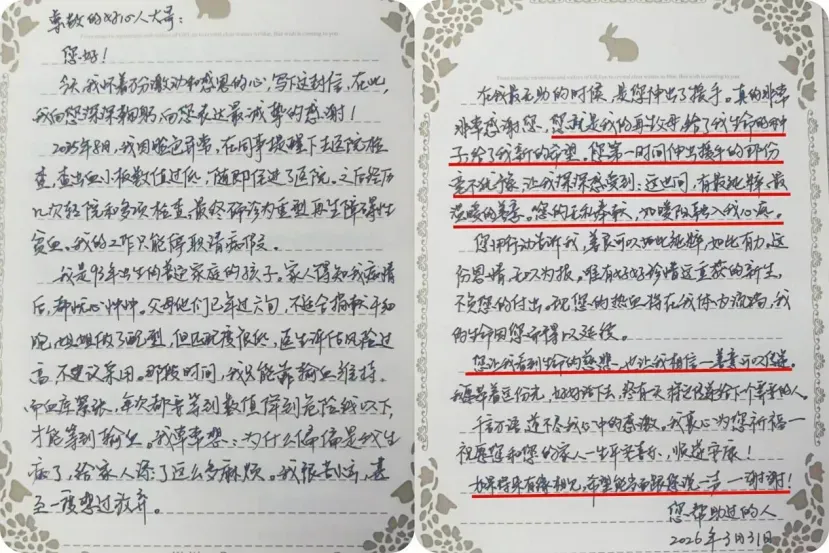 尊敬的好心人大哥：
您好！
今天我怀着万分激动和感恩的心，写下这封信，在此，
我向您深深鞠躬，向您表达最诚挚的感谢！
2025年8月，我因脸色异常，在同事提醒下去医院检
查，查出血小板数值过低，随即住进了医院。之后经历
几次转院和多项检查，最终确诊为重型再生障碍性
贫血。我的工作只能停职请病假。
我是93年出生的普通家庭的孩子。家人得知我病情
后，都忧心忡忡。父母他们已年过六旬，不适合捐献干细
胞，姐姐做了配型，但匹配度很低，医生评估风险过
高，不建议采用。那段时间，我只能靠输血维持，
而血库紧张，每次都要等到数值降到危险线以下，
才能等到输血。我常常想：为什么偏偏是我生
病了，给家人添了这么多麻烦。我很刻苦，甚
至一度想过放弃。
在我最无助的时候，是您伸出了援手。真的非常
非常感谢您，您就是我的再生父母，给了我生命的种
子，给了我新的希望。您第一时间伸出援手的那份
毫不犹豫，让我深深感受到：这世间，有最纯粹、最
温暖的善意。您的无私奉献，如暖阳融入我心底。
您用行动告诉我，善良可以如此纯粹，如此有力。这
份恩情，无以为报。唯有好好珍惜这重获的新生，
不负您的付出。现您的热血将在我体内流淌，我
的生命因您而得以延续。
您让我看到生命的慈悲，也让我相信一善意可以传递。
我愿带着这份光，好好活下去，终有一天将它传递给下个需要的人。
千言万语道不尽我心中的感激，我衷心为您祈福一
祝愿您和您的家人一生平安喜乐，顺遂安康！
如果将来有缘相见，希望能当面跟您说一声一谢谢！
您帮助过的人
2026年3月31日